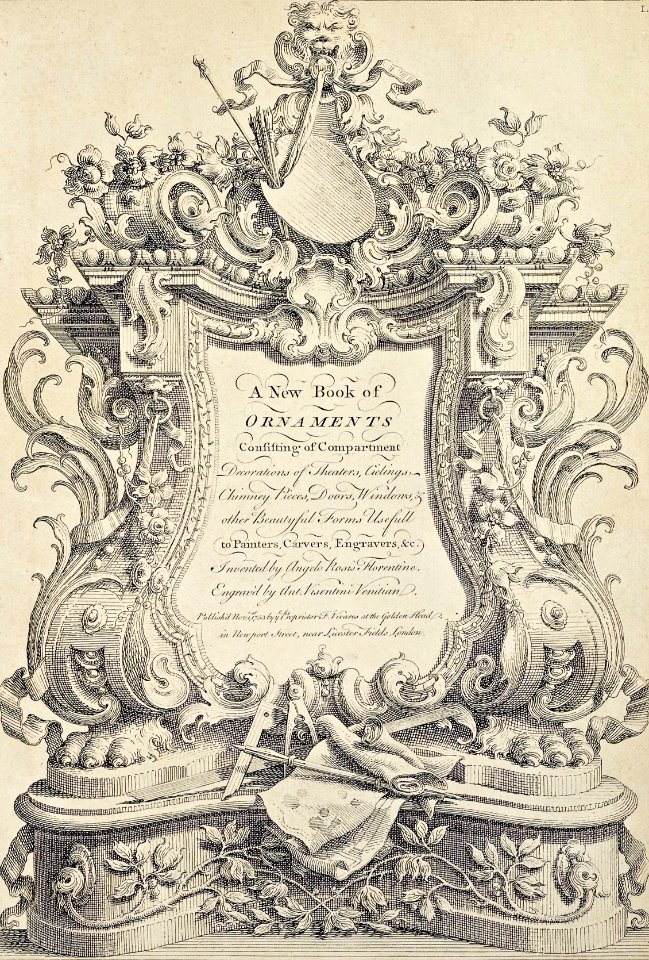 1.
A New Book of
ORNAMENTS
Confiſting of Compartment
Decorations of Theaters, Cielings,
Chimney Pieces, Doors, Windows, &
other Beautyful Forms Usefull
to Painters, Carvers, Engravers, &c.
Invented by Angelo Rosis Florentine.
Engrav'd by Ant. Visentini Venitian.
Publish'd Nov. 1753 by yͤ Proprietor F. Vivares at the Golden Head
in Newport Street, near Licester Fields London